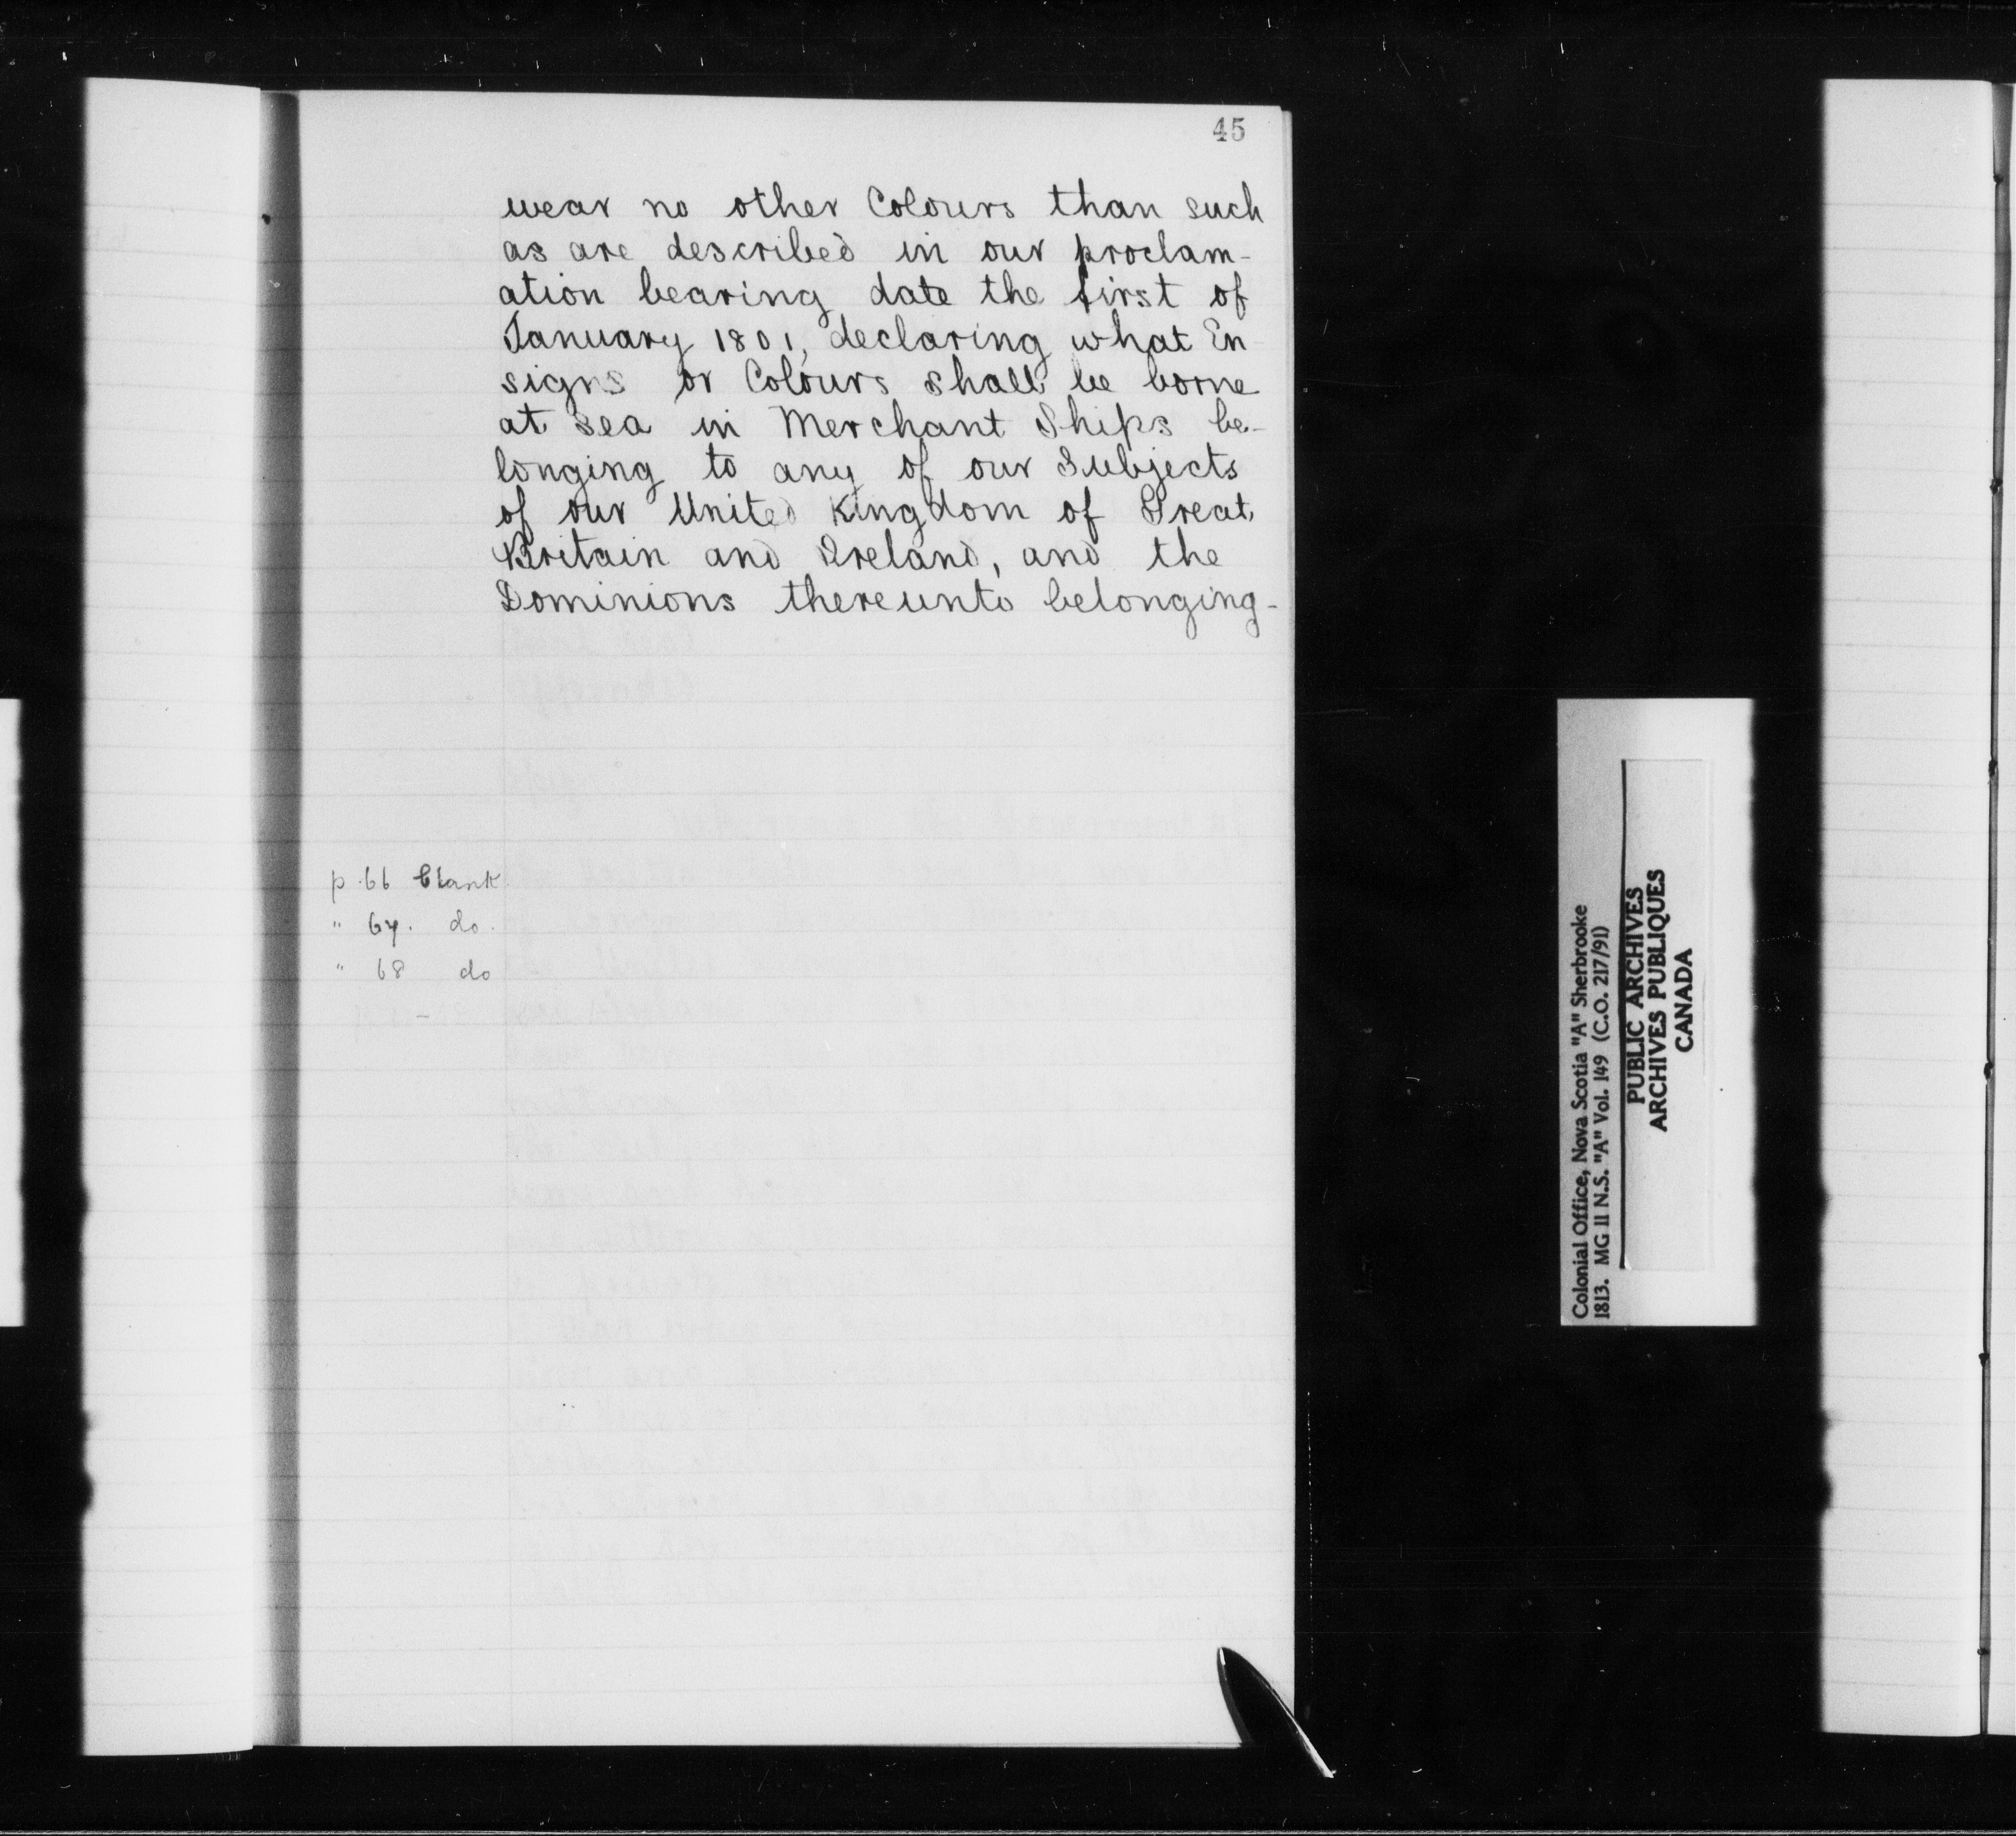 45
wear no other Colours than such
as are described in our proclam-
ation bearing date the first of
January 1801, declaring what En
signs or Colours shall be borne
at Sea in Merchant Ships be-
longing to any of our Subjects
of our United Kingdom of Great
Britain and Ireland, and the
Dominions thereunto belonging-
p. 66 blank.
" 67. do.
" 68 do
Colonial Office, Nova Scotia "A" Sherbrooke
1813. MG 11 N.S. "A" Vol. 149 (C.O. 217/91)
PUBLIC ARCHIVES
ARCHIVES PUBLIQUES
CANADA